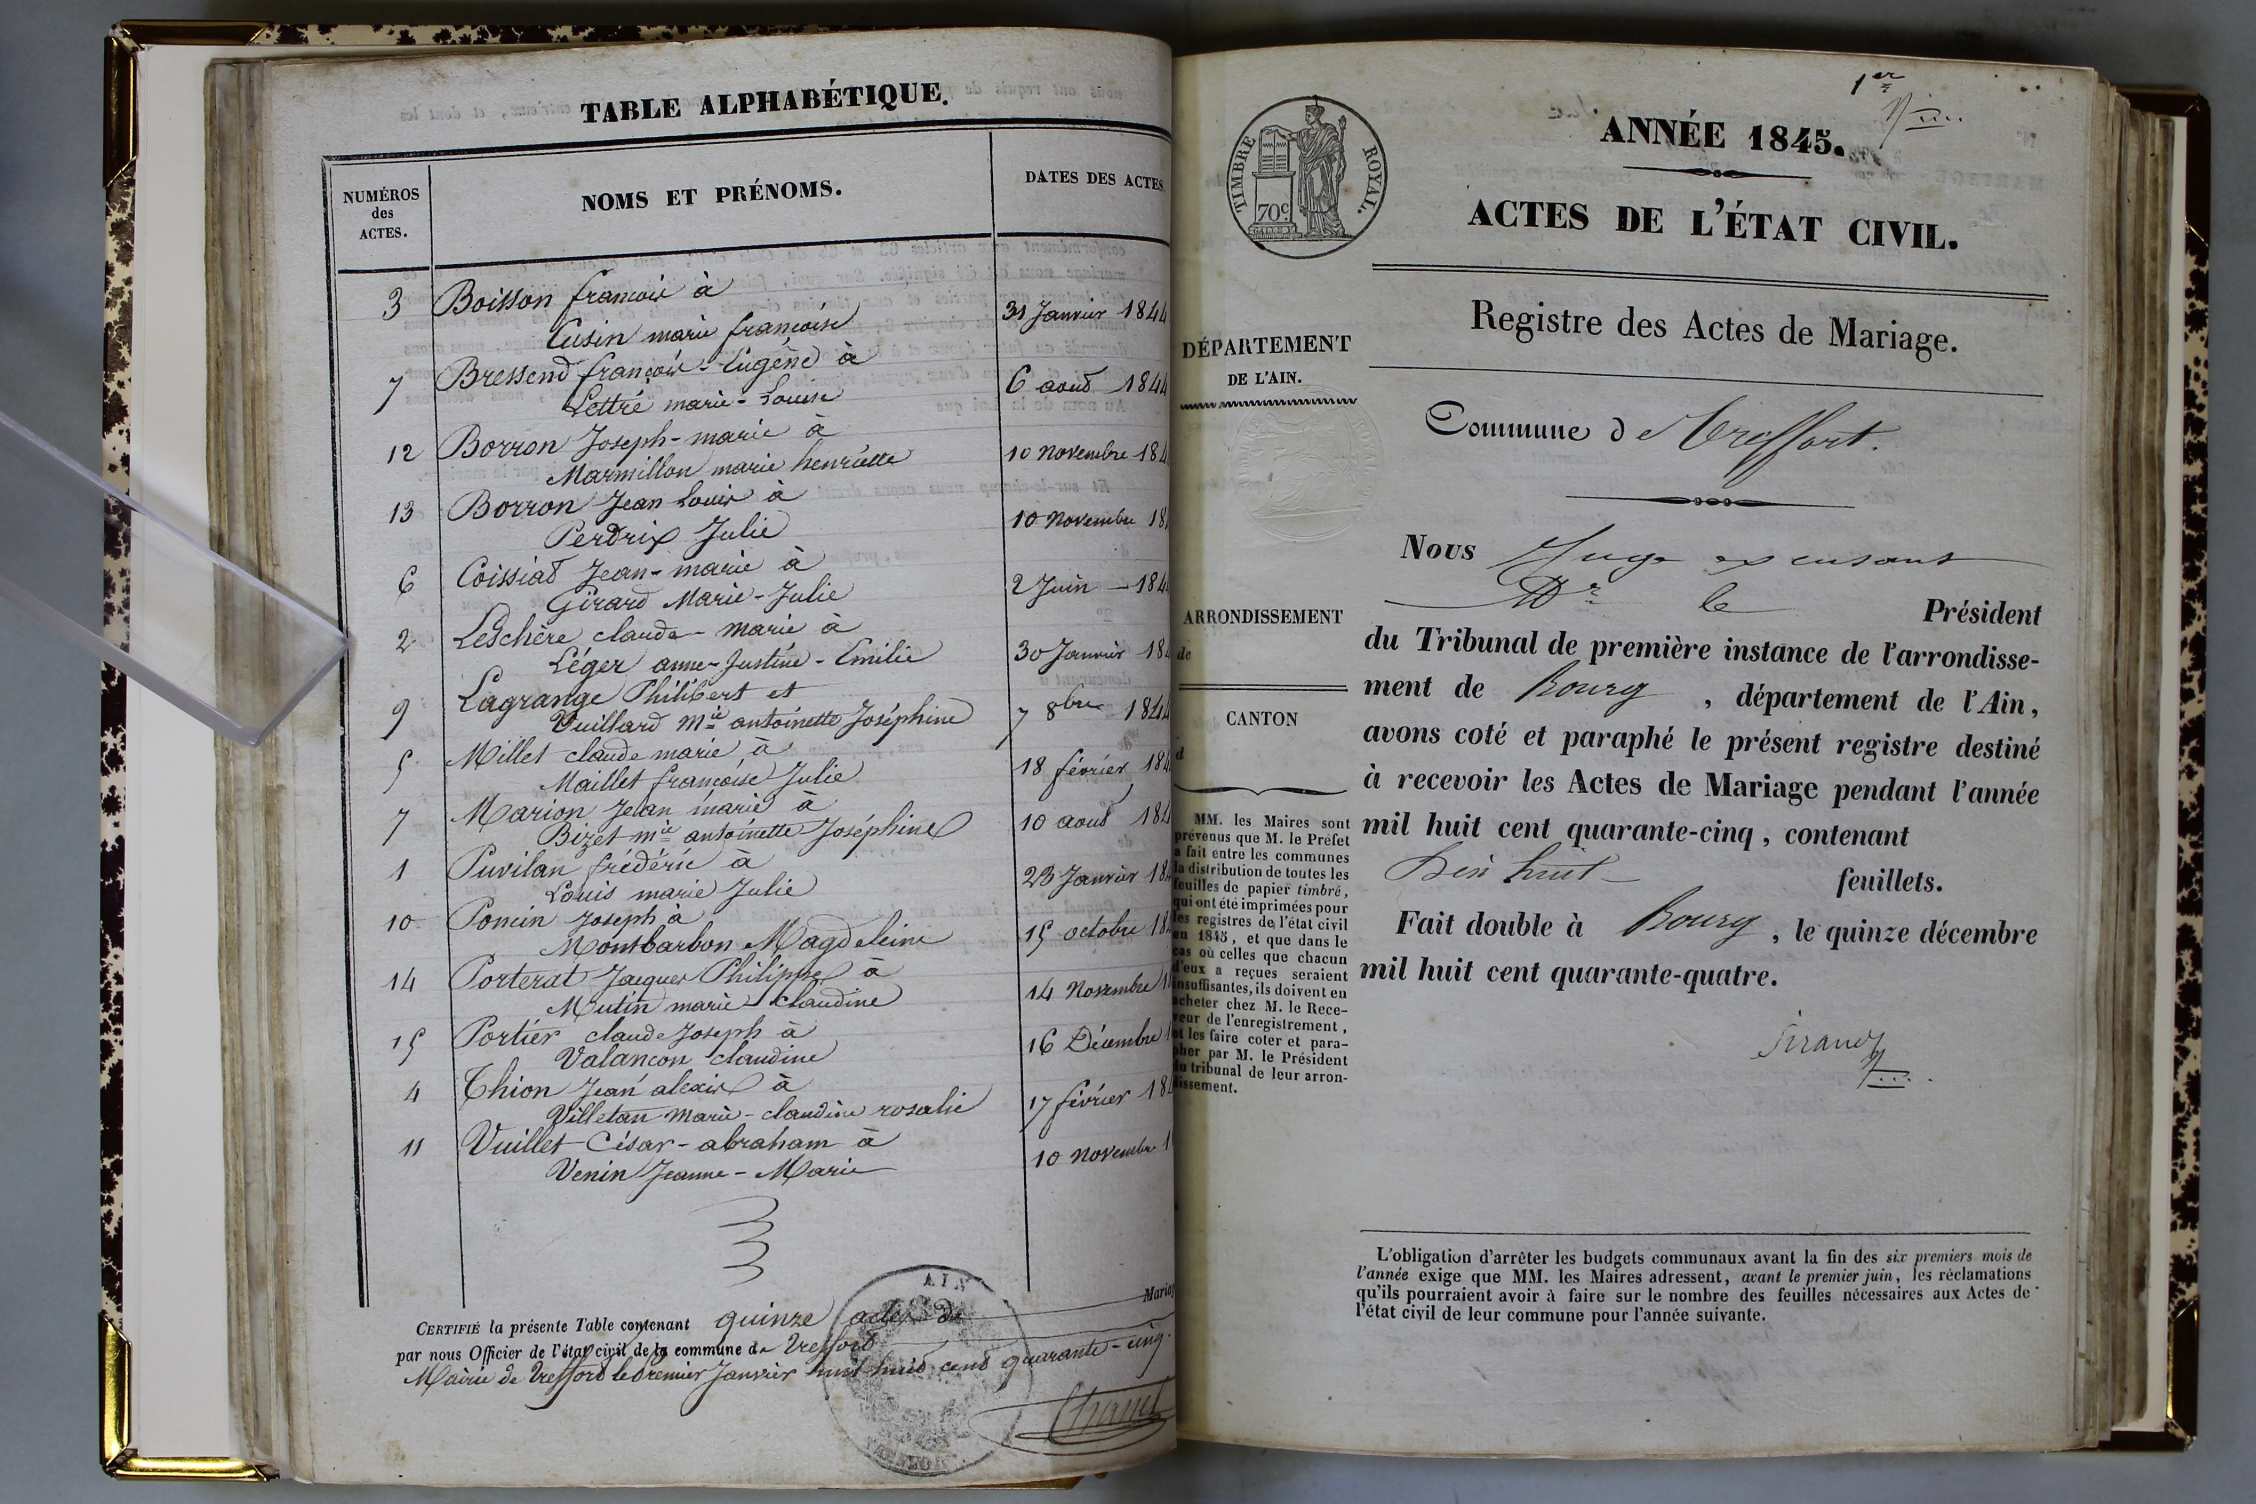 TABLE ALPHABÉTIQUE.
NUMÉROS
des
ACTES.
NOMS ET PRÉNOMS.
DATES DES ACTES
3 Boisson françois à
Cusin marie françoise
31 Janvier 1844
7 Bressend françois-Eugène à
Lettré marie-Louise
6 aout 1844
12 Borron Joseph-marie à
Marmillon marie henriette
10 Novembre 184
13 Borron Jean Louis à
Perdrix Julie
10 Novembre 18
6 Coissiat Jean-marie à
Girard Marie-Julie
2 Juin 184
2 Leschère claude-marie à
Léger anne-Justine-Emilie
30 Janvier 18
9 Lagrange Philibert et
Vuillard mie antoinette Joséphine
7 8bre 1844
5 Millet claude marie à
Maillet françoise Julie
18 février 184
7 Marion Jean marie à
Bizet mie antoinette Joséphine
10 aout 184
1 Puvilan frédéric à
Louis marie Julie
23 Janvier 18
10 Poncin Joseph à
Montbarbon Magdeleine
15 octobre 18
14 Porterat Jacques Philippe à
Mutin marie-claudine
14 Novembre 1
15 Portier claude Joseph à
Valançon claudine
16 Décembre 1
4 Chion Jean alexis à
Villetan marie-claudine rosalie
17 février 18
11 Vuillet César-abraham à
Venin Jeanne-Marie
10 Novembre 1
Certifié la présente Table contenant quinze actes de Mariag
par nous Officier de l'état civil de la commune de Treffort
Mairie de Treffort le premier Janvier mil huit cent quarante-cinq.
AIN
1er
ANNÉE 1845.
TIMBRE ROYAL.
70c
ACTES DE L'ÉTAT CIVIL.
Registre des Actes de Mariage.
DÉPARTEMENT
DE L'AIN.
Commune de Treffort.
Nous Juge excusant
Mr le Président
ARRONDISSEMENT
de
CANTON
d
du Tribunal de première instance de l'arrondisse-
ment de Bourg, département de l'Ain,
avons coté et paraphé le présent registre destiné
à recevoir les Actes de Mariage pendant l'année
mil huit cent quarante-cinq, contenant
Dix huit feuillets.
Fait double à Bourg, le quinze décembre
mil huit cent quarante-quatre.
MM. les Maires sont
prévenus que M. le Préfet
a fait entre les communes
la distribution de toutes les
feuilles de papier timbré,
qui ont été imprimées pour
les registres de l'état civil
en 1845, et que dans le
cas où celles que chacun
d'eux a reçues seraient
insuffisantes, ils doivent en
acheter chez M. le Rece-
veur de l'enregistrement,
et les faire coter et para-
pher par M. le Président
du tribunal de leur arron-
dissement.
L'obligation d'arrêter les budgets communaux avant la fin des six premiers mois de
l'année exige que MM. les Maires adressent, avant le premier juin, les réclamations
qu'ils pourraient avoir à faire sur le nombre des feuilles nécessaires aux Actes de
l'état civil de leur commune pour l'année suivante.